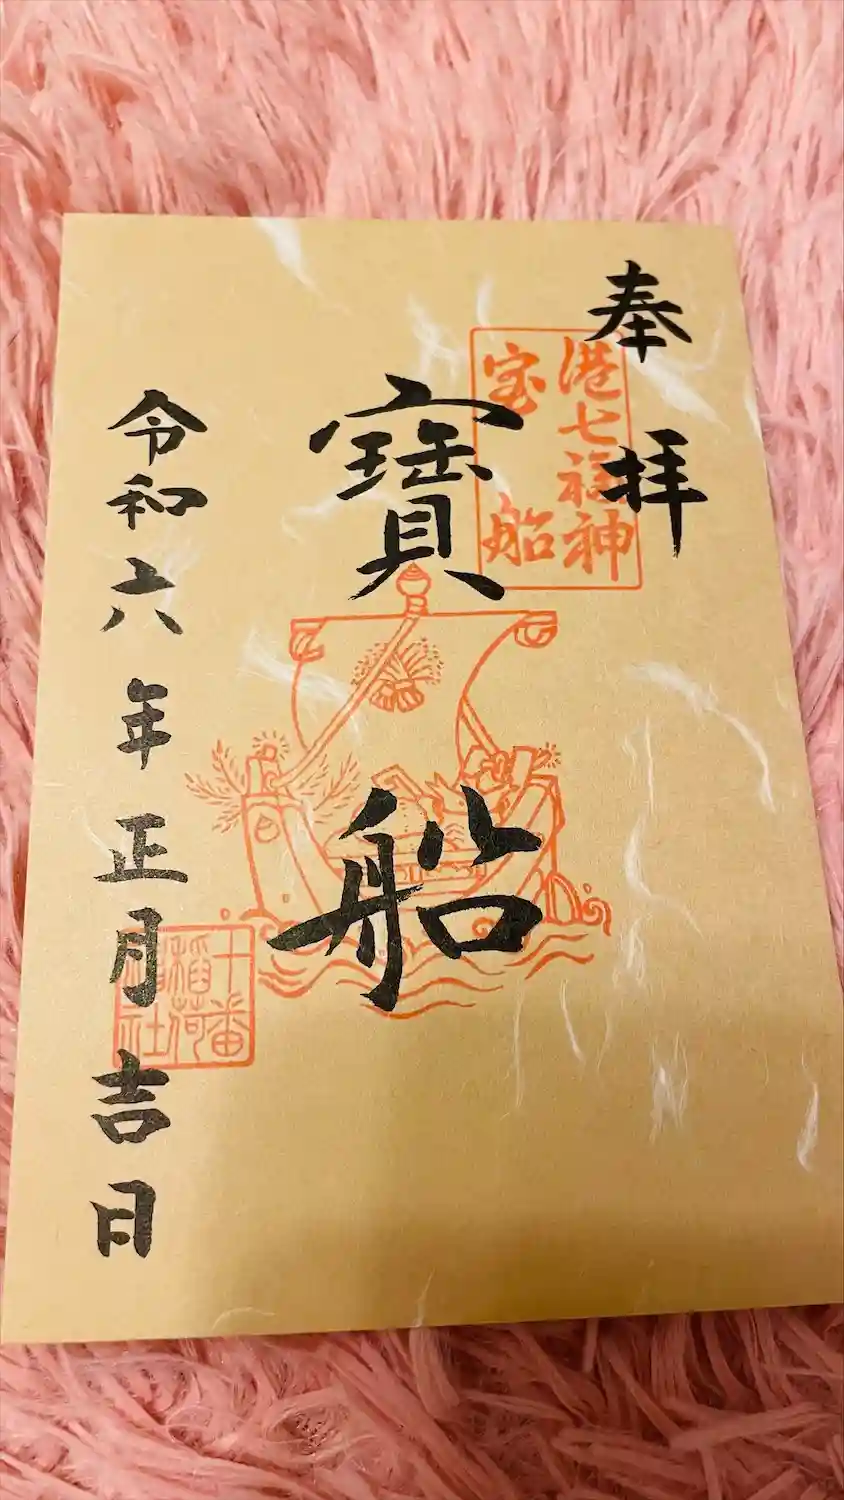 奉拝
港七福神
宝船
寶船
令和六年正月吉日
十番
稲荷
社